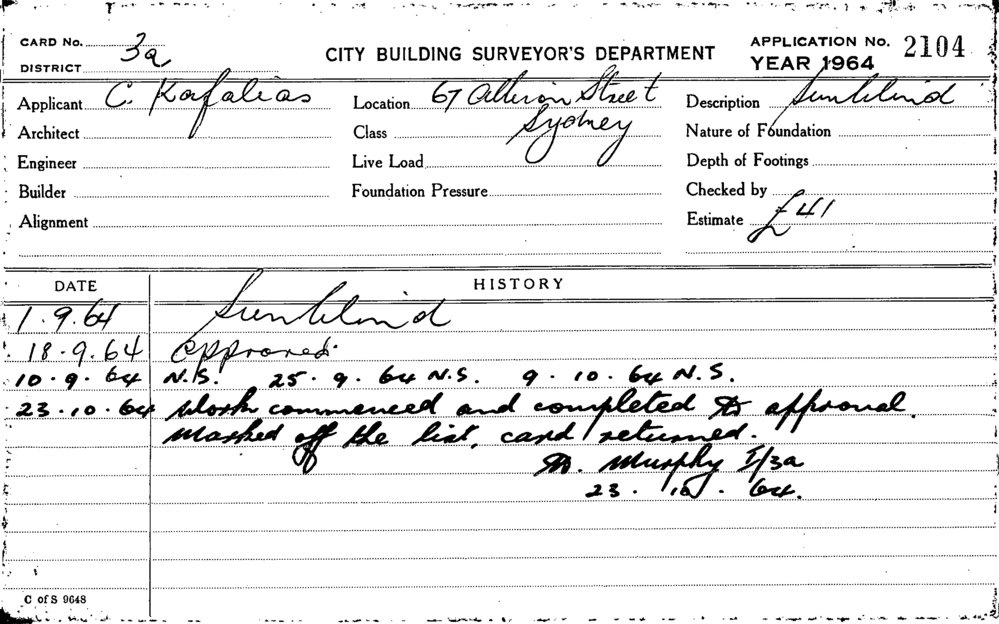 CARD No. 3a
DISTRICT
CITY BUILDING SURVEYOR'S DEPARTMENT
APPLICATION No. 2104
YEAR 1964
Applicant C. Kafalias
Location 67 Albion Street
Sydney
Description Sunblind
Architect
Class
Nature of Foundation
Engineer
Live Load
Depth of Footings
Builder
Foundation Pressure
Checked by
Alignment
Estimate £41
DATE HISTORY
1.9.64 Sunblind
18.9.64 Approved.
10.9.64 N.S. 25.9.64 N.S. 9.10.64 N.S.
23.10.64 Work commenced and completed to approval.
Marked off the list, card returned.
Murphy I/3a
23.10.64.
C of S 9648